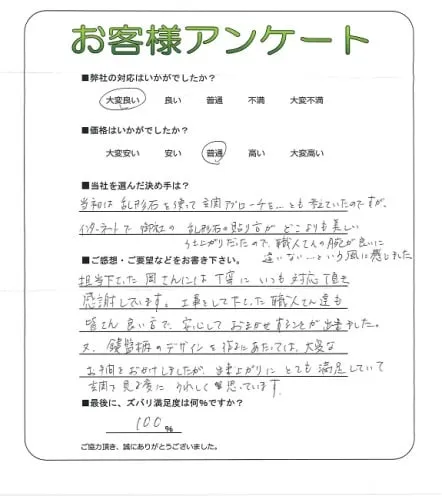 お客様アンケート
■弊社の対応はいかがでしたか?
大変良い 良い 普通 不満 大変不満
■価格はいかがでしたか?
大変安い 安い 普通 高い 大変高い
■当社を選んだ決め手は?
当初は乱形石を使って玄関アプローチを…とも考えていたのですが、
インターネットで御社の乱形石の貼り方がどこよりも美しい
仕上がりだったので、職人さんの腕が良いに
違いない…という風に感じました
■ご感想・ご要望などをお書き下さい。
担当下さった岡さんには丁寧にいつも対応頂き
感謝しています。工事をして下さった職人さん達も
皆さん良い方で、安心しておまかせすることが出来ました。
又、鏡貼柄のデザインを
にあたっては、大変な
お手間をおかけしましたが、出来上がりにとても満足していて
玄関を見る度にうれしく思っています。
■最後に、ズバリ満足度は何%ですか?
100%
ご協力頂き、誠にありがとうございました。